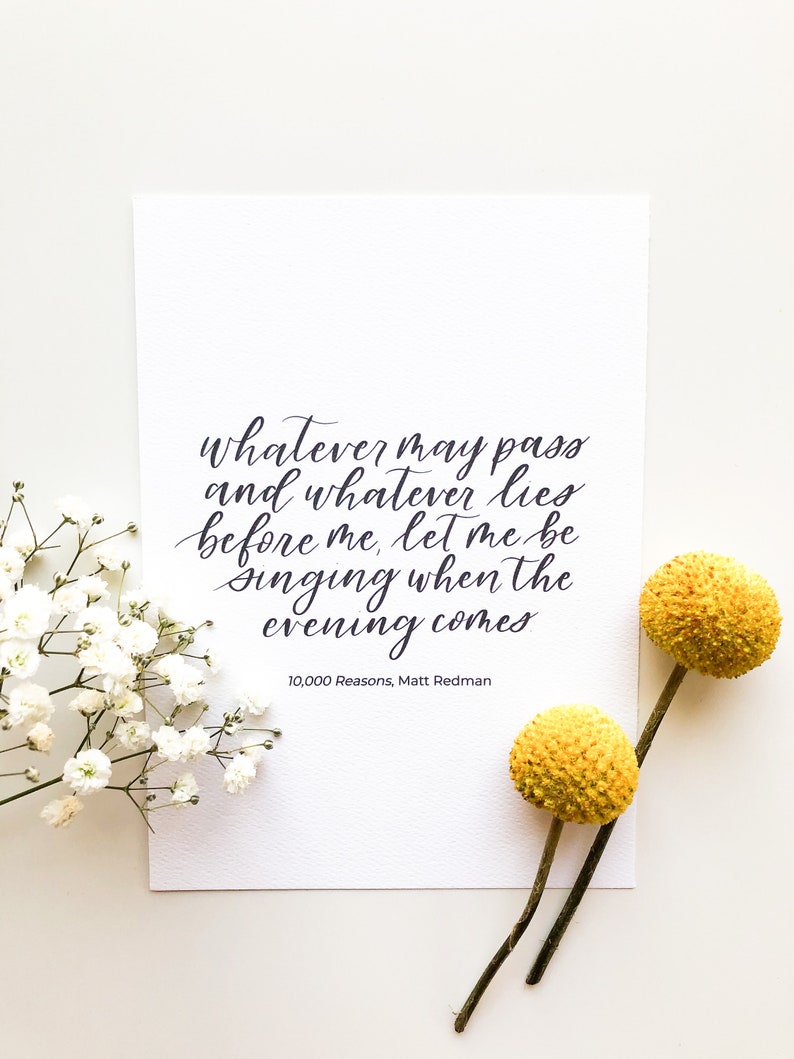 whatever may pass
and whatever lies
before me, let me be
singing when the
evening comes
10,000 Reasons, Matt Redman